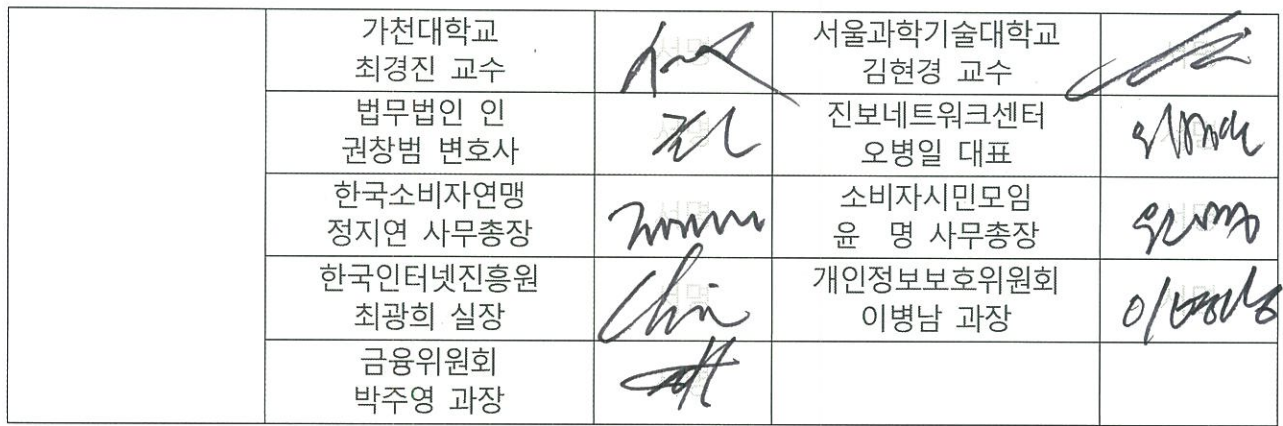 가천대학교
최경진 교수
서명
서울과학기술대학교
김현경 교수
서명
법무법인 인
권창범 변호사
서명
진보네트워크센터
오병일 대표
서명
한국소비자연맹
정지연 사무총장
서명
소비자시민모임
윤 명 사무총장
서명
한국인터넷진흥원
최광희 실장
서명
개인정보보호위원회
이병남 과장
서명
금융위원회
박주영 과장
서명